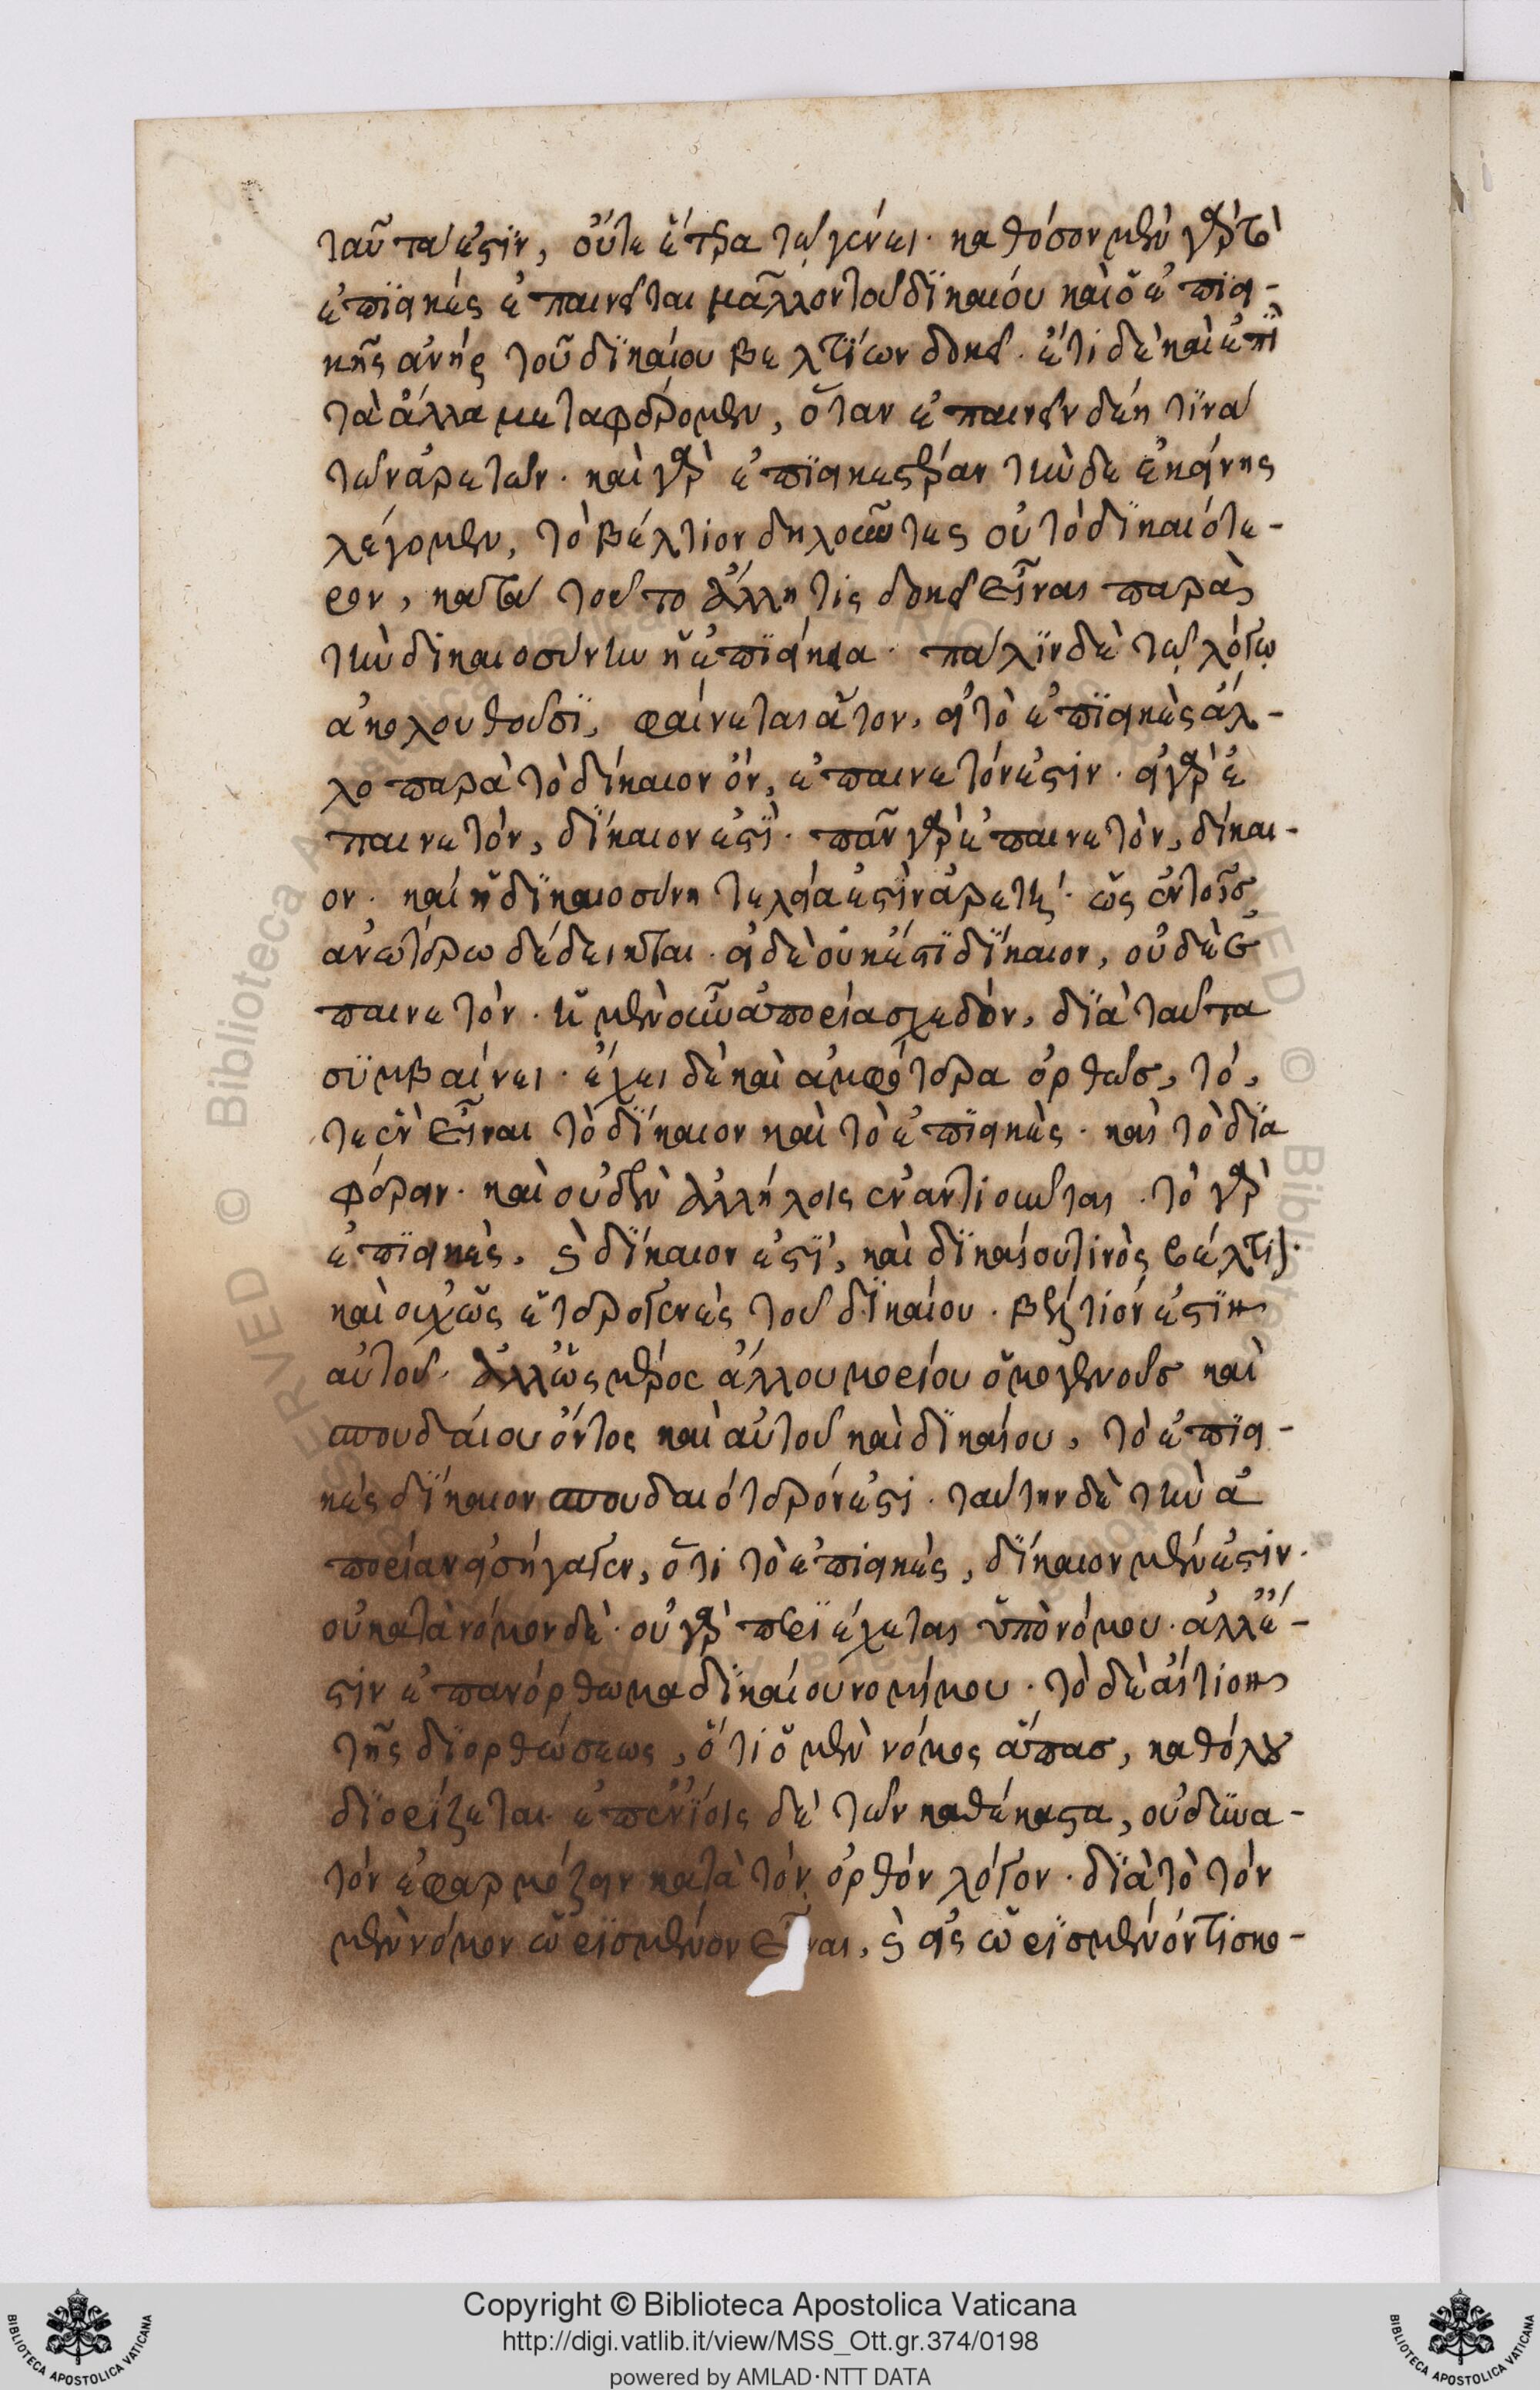 ταῦτά ἐστιν, οὔτε ἕτερα τῷ γένει· καθόσον μὲν γὰρ τὸ
ἐπιεικές ἐπαινεῖται μᾶλλον τοῦ δικαίου καὶ ὁ ἐπιει-
κῆς ἀνήρ τοῦ δικαίου βελτίων δοκεῖ. ἔτι δὲ καὶ ἐπὶ
τὰ ἄλλα μεταφέρομεν, ὅταν ἐπαινεῖν δέῃ τινὰ
τῶν ἀρετῶν· καὶ γὰρ ἐπιεικεστέραν τήνδε ἐκείνης
λέγομεν, τὸ βέλτιον δηλοῦντες οὐ τὸ δικαιότε-
ρον, κατὰ τοῦτο ἄλλη τις δοκεῖ εἶναι παρὰ
τὴν δικαιοσύνην ἡ ἐπιείκεια· πάλιν δὲ τῷ λόγῳ
ἀκολουθοῦσι, φαίνεται ἄτοπον, εἰ τὸ ἐπιεικὲς ἄλ-
λο παρὰ τὸ δίκαιον ὄν, ἐπαινετόν ἐστιν· εἰ γὰρ ἐ
παινετόν, δίκαιον ἐστί· πᾶν γὰρ ἐπαινετὸν, δίκαι-
ον· καί ἡ δικαιοσύνη τελεία ἐστὶν ἀρετή· ὡς ἐν τοῖς
ἀνωτέρω δέδεικται· εἰ δὲ οὐκ ἐστὶ δίκαιον, οὐδὲ ἐ
παινετόν· ἡ μὲν οὖν ἀπορία σχεδὸν, διὰ ταῦτα
συμβαίνει· ἔχει δὲ καὶ ἀμφότερα ὀρθῶς, τό,
τε ἓν εἶναι τὸ δίκαιον καὶ τὸ ἐπιεικὲς· καὶ τὸ δια
φέρειν· καὶ οὐδὲν ἀλλήλοις ἐναντιοῦται· τὸ γὰρ
ἐπιεικὲς, καὶ δίκαιον ἐστί, καὶ δικαίου τινὸς βέλτιον·
καὶ οὐχ ὡς ἑτερογενὲς τοῦ δικαίου· βέλτιόν ἐστιν
αὐτοῦ· ἀλλ' ὡς μέρος ἄλλου μορίου ὁμογενοῦς καὶ
σπουδαίου ὄντος καὶ αὐτοῦ καὶ δικαίου, τὸ ἐπιει-
κὲς δίκαιον σπουδαιότερόν ἐστι· ταύτην δὲ τὴν ἀ
πορίαν εἰσήγαγεν, ὅτι τὸ ἐπιεικές, δίκαιον μέν ἐστιν·
οὐ κατὰ νόμον δὲ· οὐ γὰρ περιέχεται ὑπὸ νόμου· ἀλλ' ἔ-
στιν ἐπανόρθωμα δικαίου νομίμου· τὸ δὲ αἴτιον
τῆς διορθώσεως, ὅτι ὁ μὲν νόμος ἅπας, καθόλου
διορίζεται· ἐπ' ἐνίοις δὲ τῶν καθέκαστα, οὐ δυνα-
τόν ἐφαρμόζειν κατὰ τὸν ὀρθόν λόγον· διὰ τὸ τὸν
μὲν νόμον ὡρισμένον εἶναι, καὶ εἰς ὡρισμένόν τι σκο-
Copyright © Biblioteca Apostolica Vaticana
http://digi.vatlib.it/view/MSS_Ott.gr.374/0198
powered by AMLAD·NTT DATA